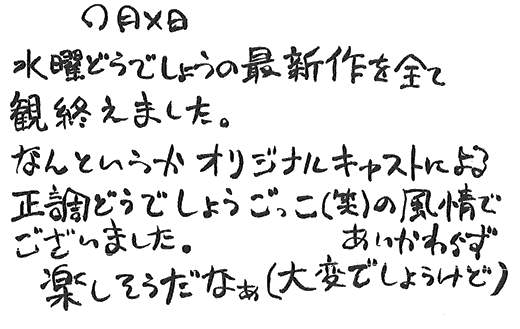 〇月×日
水曜どうでしょうの最新作を全て
観終えました。
なんというか オリジナルキャストによる
正調どうでしょうごっこ(笑)の風情で
ございました。 あいかわらず
楽しそうだなぁ(大変でしょうけど)